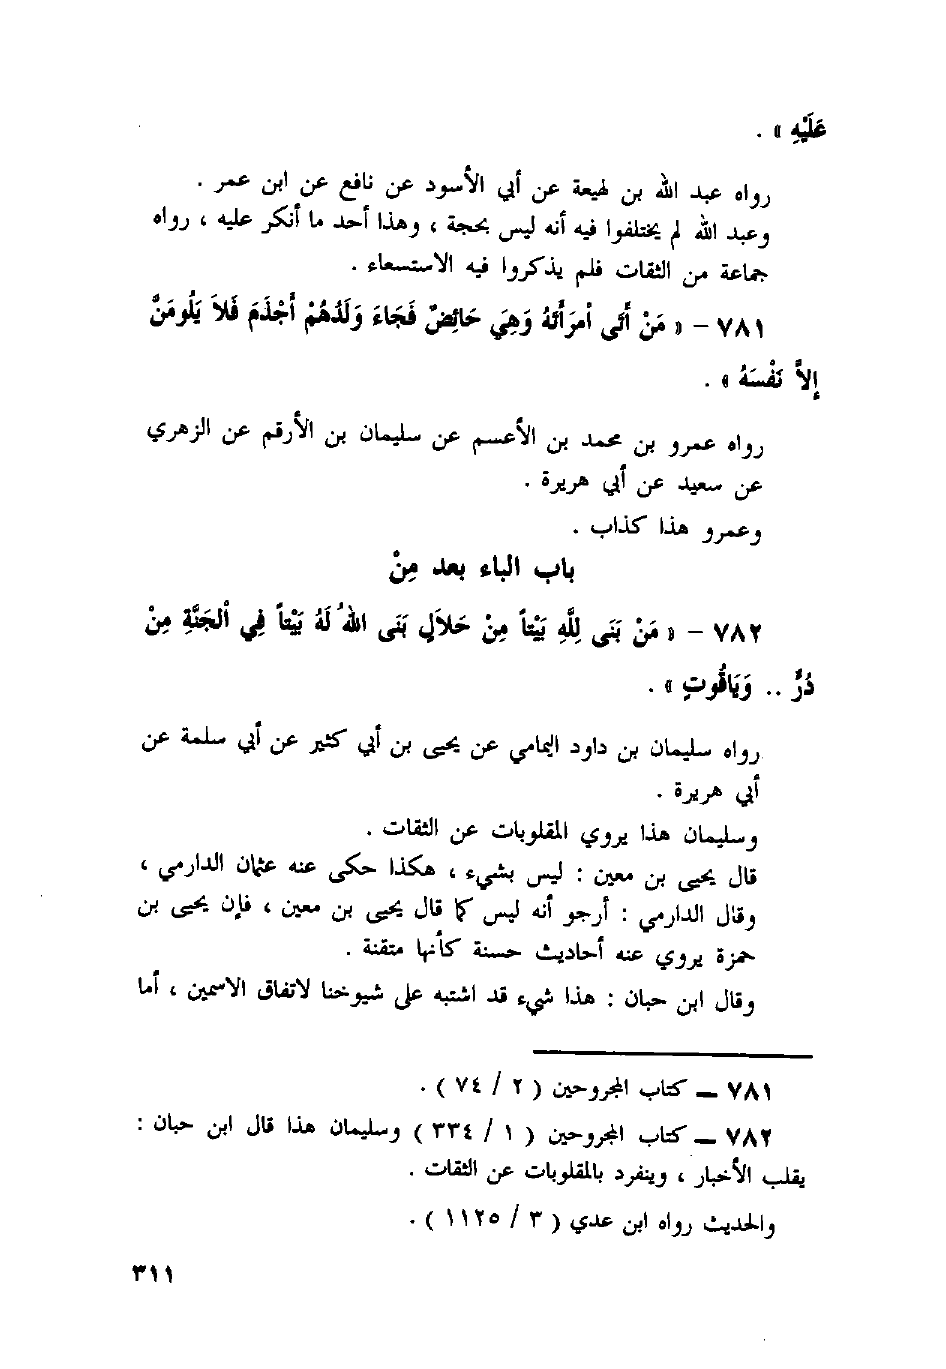 عَلَيْهِ » .
رواه عبد الله بن لهيعة عن أبي الأسود عن نافع عن ابن عمر .
وعبد الله لم يختلفوا فيه أنه ليس بحجة ، وهذا أحد ما أنكر عليه ، رواه
جماعة من الثقات فلم يذكروا فيه الاستسعاء .
٧٨١ – « مَنْ أَتَى أمرَأَتَهُ وَهِيَ حَائِضٌ فَجَاءَ وَلَدُهُمْ أَجْذَمَ فَلاَ يَلُومَنَّ
إِلاَّ نَفْسَهُ » .
رواه عمرو بن محمد بن الأعسم عن سليمان بن الأرقم عن الزهري
عن سعيد عن أبي هريرة .
وعمرو هذا كذاب .
باب الباء بعد مِنْ
٧٨٢ – « مَنْ بَنَى لِلَّهِ بَيْتاً مِنْ حَلاَلٍ بَنَى اللهُ لَهُ بَيْتاً فِي ألجَنَّةِ مِنْ
دُرٍّ .. وَيَاقُوتٍ » .
رواه سليمان بن داود اليمامي عن يحيى بن أبي كثير عن أبي سلمة عن
أبي هريرة .
وسليمان هذا يروي المقلوبات عن الثقات .
قال يحيى بن معين : ليس بشيء ، هكذا حكى عنه عثمان الدارمي ،
وقال الدارمي : أرجو أنه ليس كما قال يحيى بن معين ، فإن يحيى بن
حمزة يروي عنه أحاديث حسنة كأنها متقنة .
وقال ابن حبان : هذا شيء قد اشتبه على شيوخنا لاتفاق الاسمين ، أما
٧٨١ – كتاب المجروحين ( ٢ / ٧٤ ) .
٧٨٢ – كتاب المجروحين ( ١ / ٣٣٤ ) وسليمان هذا قال ابن حبان :
يقلب الأخبار ، وينفرد بالمقلوبات عن الثقات .
والحديث رواه ابن عدي ( ٣ / ١١٢٥ ) .
٣١١